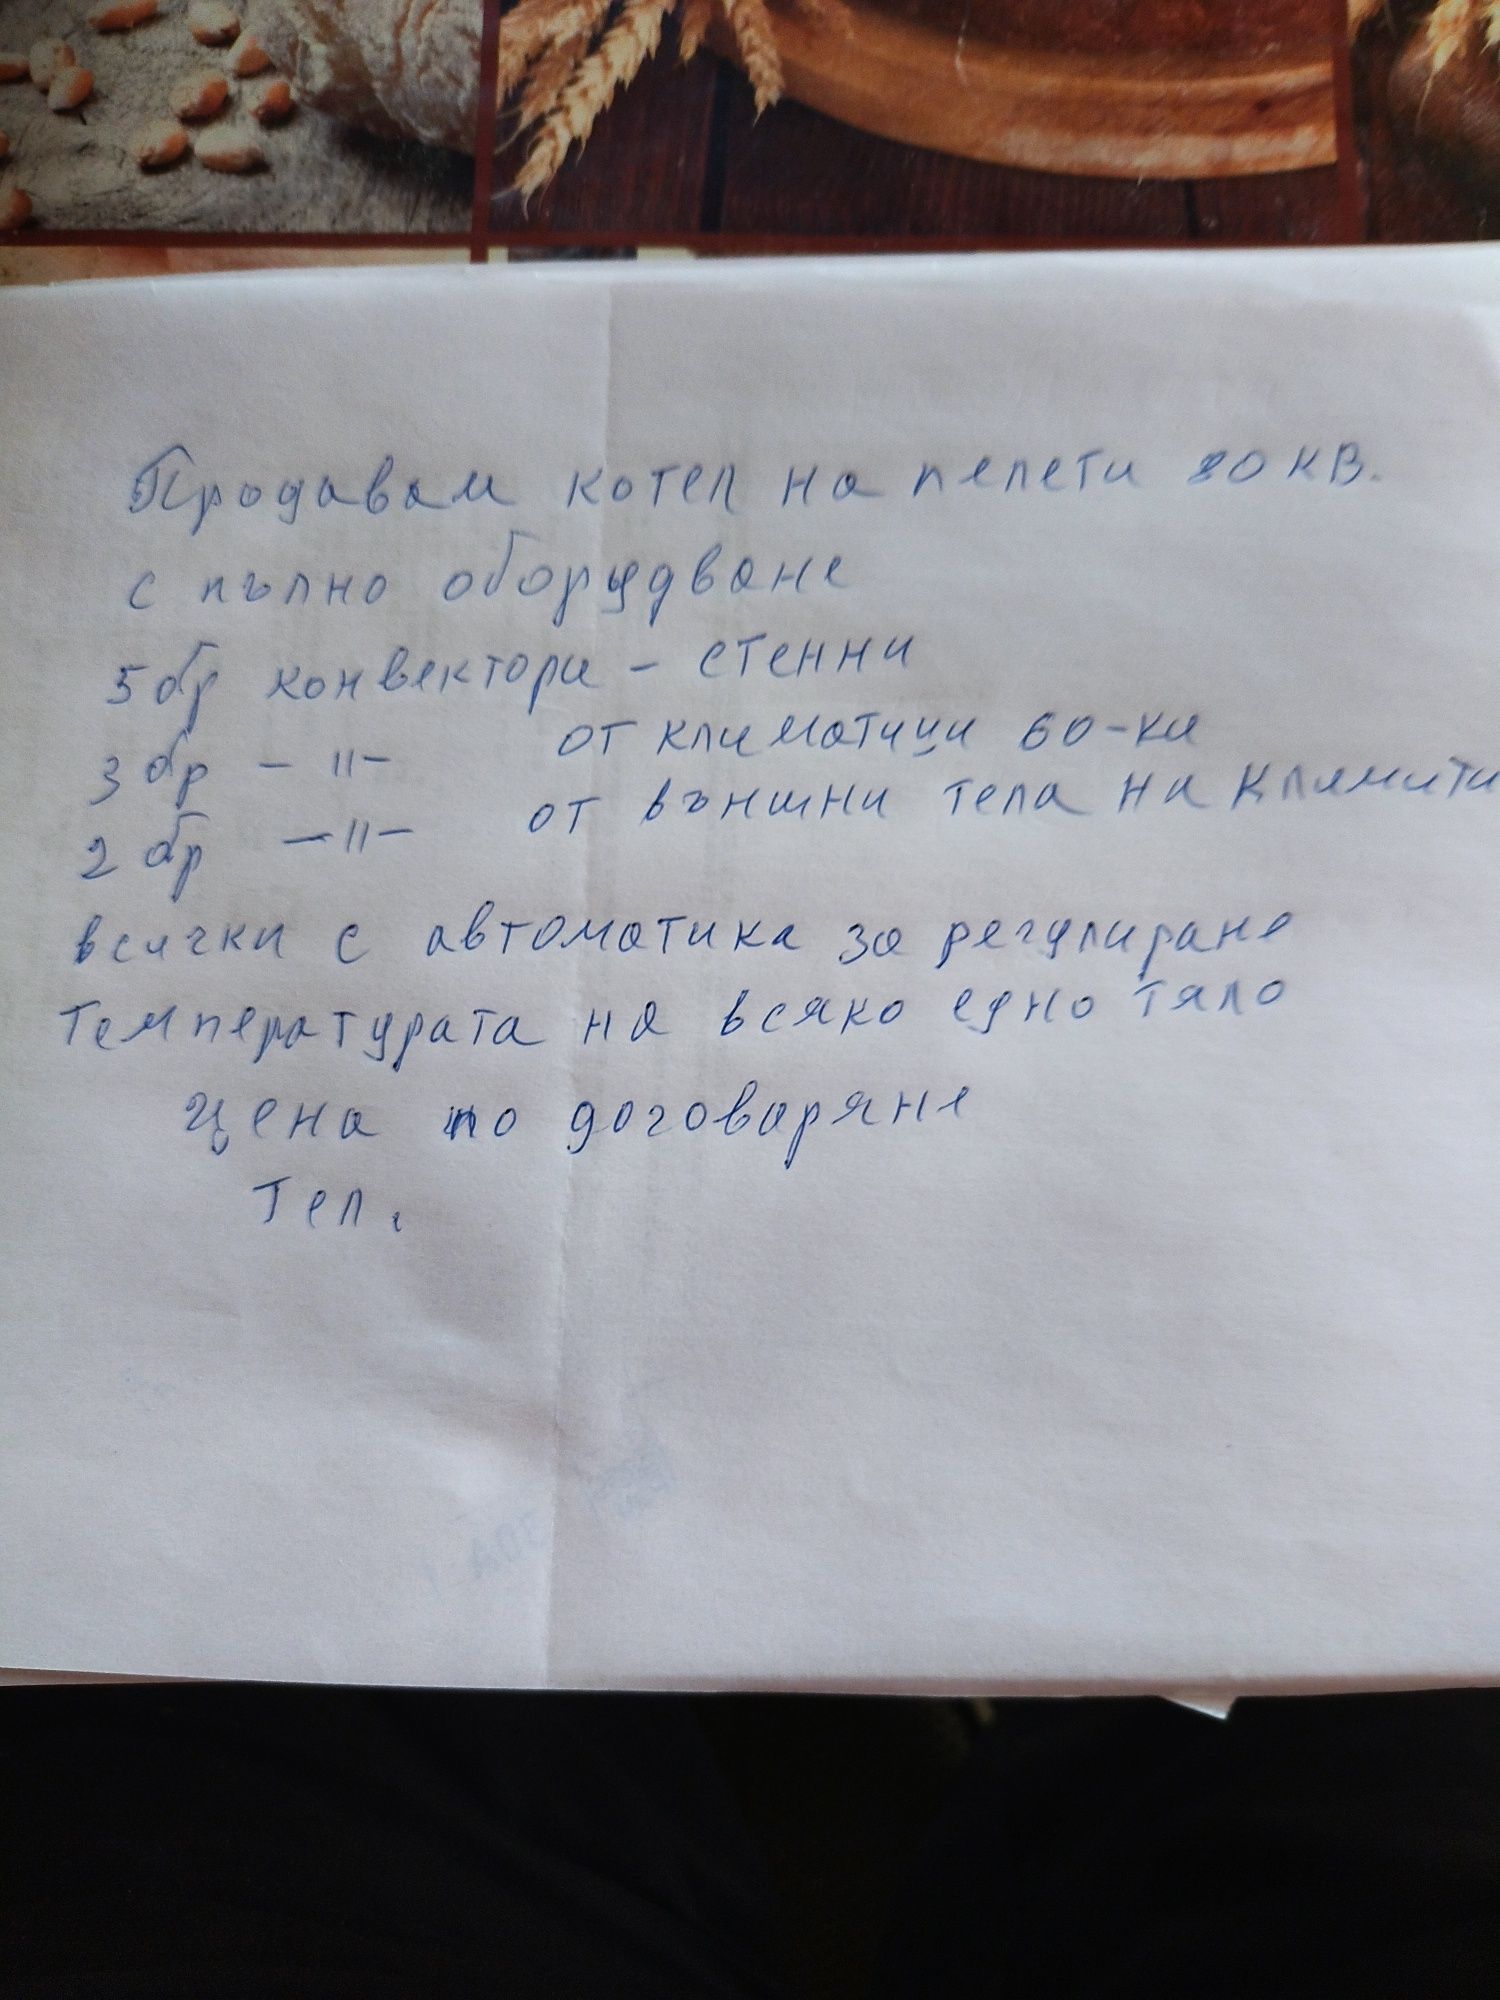 Продавам котел на пелети 80 кв.
с пълно оборудване
5 бр конвектори - стенни
3 бр - 11 - от климатици 60-ка
2 бр - 11 - от външни тела на
всички с автоматика за регулиране
температурата на всяко едно тяло
Цена по договаряне
Тел.